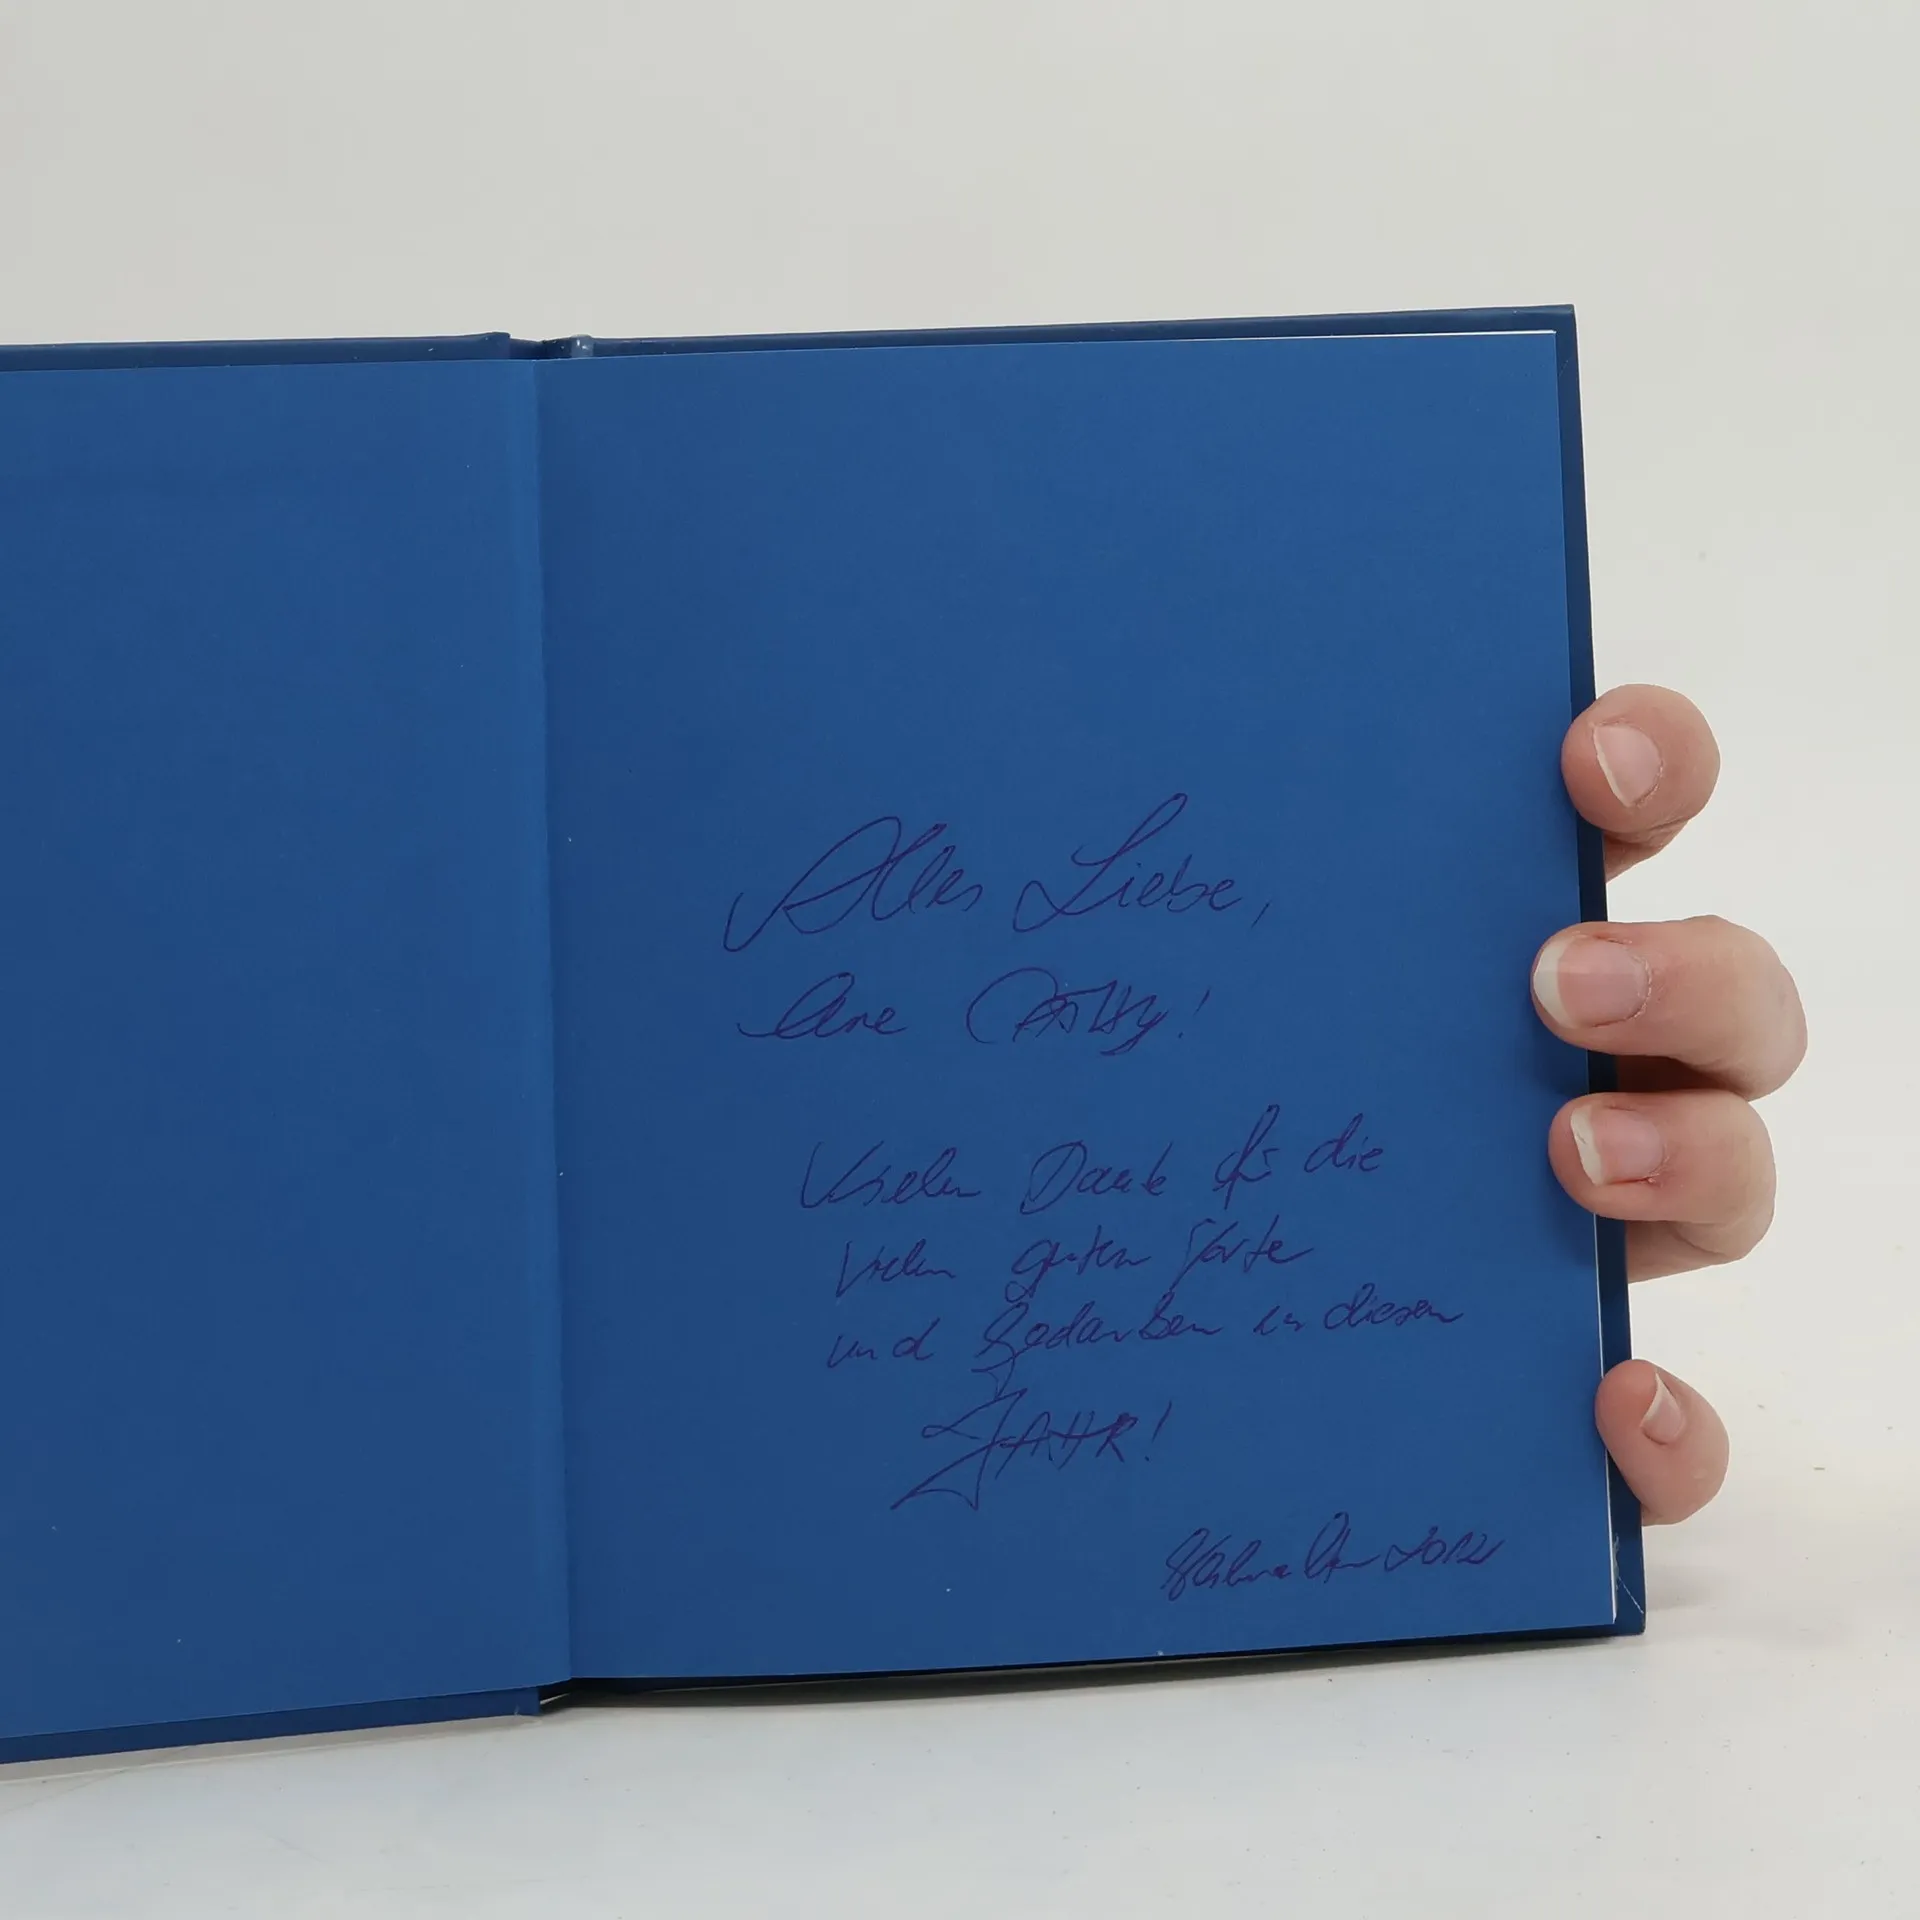 Alles Liebe,
Vielen Dank für die
vielen guten Worte
und Gedanken in diesem
JAHR!
2012